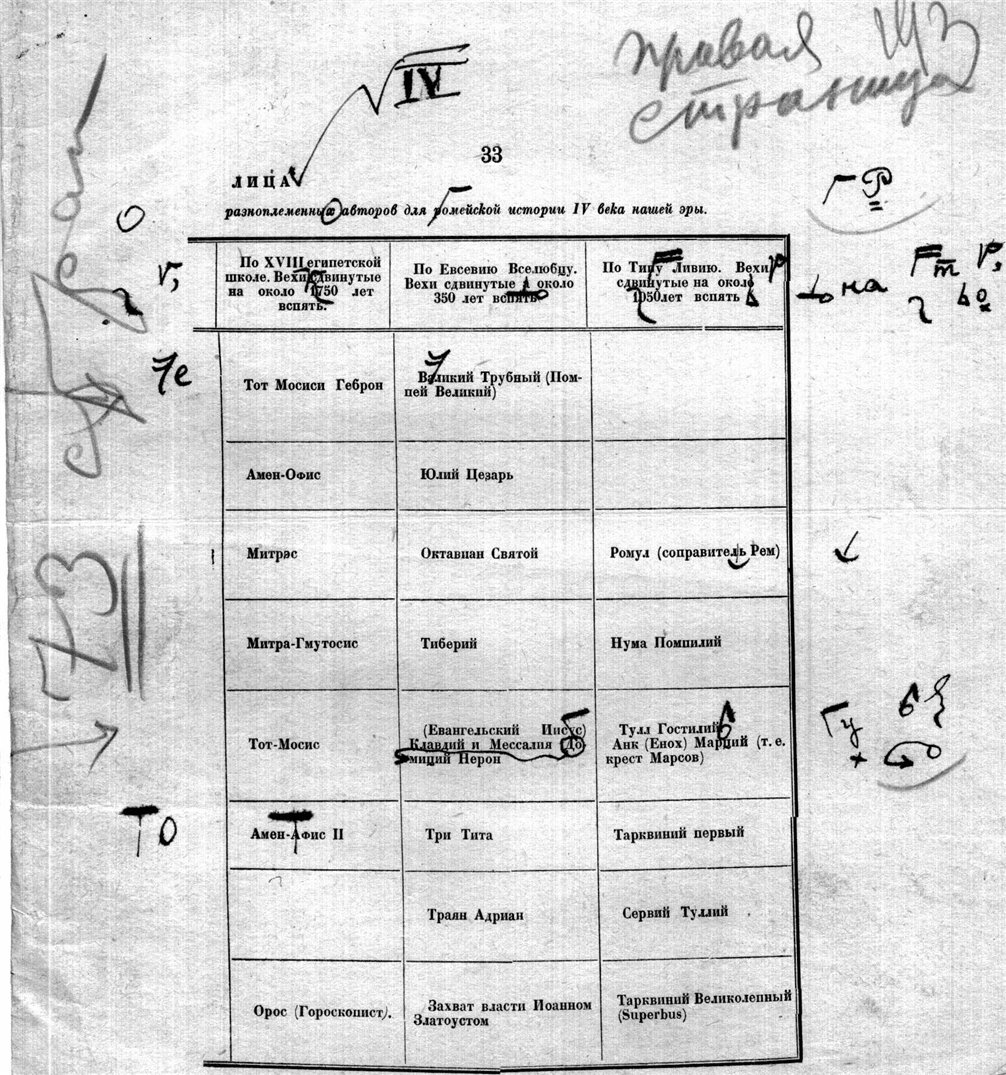 правая
страница
IV
33
ЛИЦА
разноплеменных авторов для ромейской истории IV века нашей эры.
По XVIII египетской
школе. Вехи сдвинутые
на около 1750 лет
вспять.
По Евсевию Вселюбцу.
Вехи сдвинутые на около
350 лет вспять
По Титу Ливию. Вехи
сдвинутые на около
1050лет вспять
на
Тот Мосиси Геброн
Великий Трубный (Пом-
пей Великий)
7е
Амен-Офис
Юлий Цезарь
Митрас
Октавиан Святой
Ромул (соправитель Рем)
73
Митра-Гмутосис
Тиберий
Нума Помпилий
Тот-Мосис
(Евангельский Иисус)
Клавдий и Мессалия До-
миций Нерон
Тулл Гостилий
Анк (Енох) Марций (т. е.
крест Марсов)
Амен-Афис II
Три Тита
Тарквиний первый
Траян Адриан
Сервий Туллий
Орос (Гороскопист).
Захват власти Иоанном
Златоустом
Тарквиний Великолепный
(Superbus)